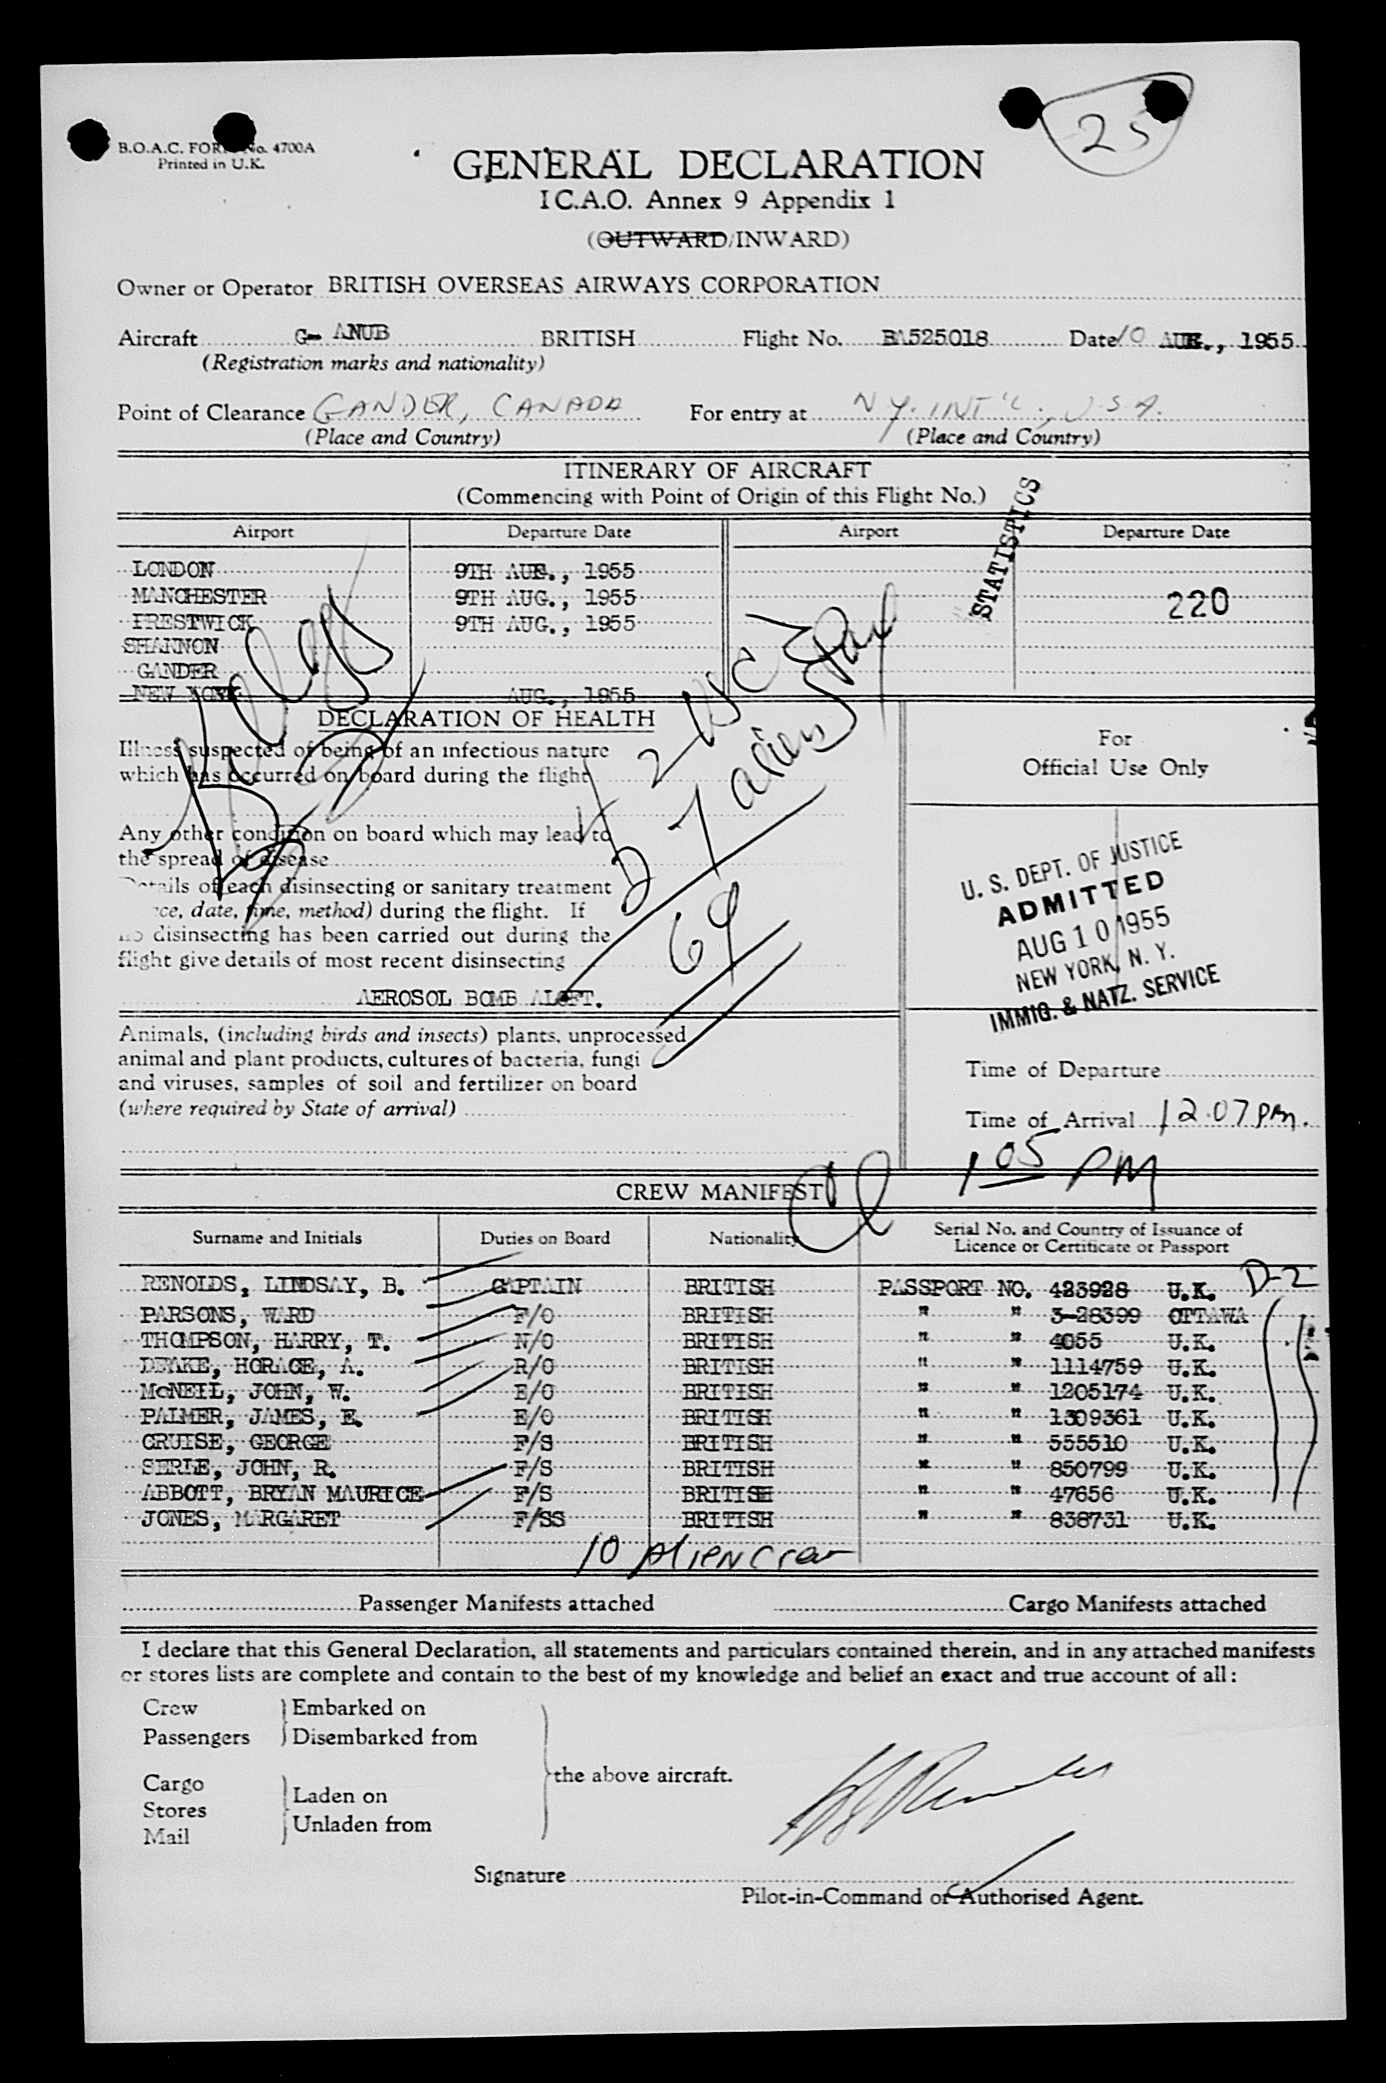 25
B.O.A.C. FORM No. 4700A
Printed in U.K.
GENERAL DECLARATION
I C.A.O. Annex 9 Appendix 1
(OUTWARD/INWARD)
Owner or Operator BRITISH OVERSEAS AIRWAYS CORPORATION
Aircraft G- ANUB BRITISH Flight No. BA525018 Date 10 AUG., 1955
(Registration marks and nationality)
Point of Clearance GANDER, CANADA For entry at N.Y. INT'L., U.S.A.
(Place and Country) (Place and Country)
ITINERARY OF AIRCRAFT
(Commencing with Point of Origin of this Flight No.)
STATISTICS
Airport Departure Date Airport Departure Date
LONDON 9TH AUG., 1955
MANCHESTER 9TH AUG., 1955 220
PRESTWICK 9TH AUG., 1955
SHANNON
GANDER
NEW YORK AUG., 1955
DECLARATION OF HEALTH
Illness suspected of being of an infectious nature
which has occurred on board during the flight
2-USC
7 aliens
64
Any other condition on board which may lead to
the spread of disease
Details of each disinsecting or sanitary treatment
date, time, method) during the flight. If
no disinsecting has been carried out during the
flight give details of most recent disinsecting
AEROSOL BOMB ALOFT.
Animals, (including birds and insects) plants, unprocessed
animal and plant products, cultures of bacteria, fungi
and viruses, samples of soil and fertilizer on board
(where required by State of arrival)
For
Official Use Only
U. S. DEPT. OF JUSTICE
ADMITTED
AUG 10 1955
NEW YORK, N. Y.
IMMIG. & NATZ. SERVICE
Time of Departure
Time of Arrival 12.07 pm.
1 05 PM
CREW MANIFEST
Surname and Initials Duties on Board Nationality Serial No. and Country of Issuance of
Licence or Certificate or Passport
D-2
RENOLDS, LINDSAY, B. CAPTAIN BRITISH PASSPORT NO. 423928 U.K.
PARSONS, WARD F/O BRITISH " " 3-28399 OTTAWA
THOMPSON, HARRY, T. N/O BRITISH " " 4055 U.K.
DEAKE, HORACE, A. R/O BRITISH " " 1114759 U.K.
McNEIL, JOHN, W. E/O BRITISH " " 1205174 U.K.
PALMER, JAMES, E. E/O BRITISH " " 1309361 U.K.
CRUISE, GEORGE F/S BRITISH " " 555510 U.K.
SERLE, JOHN, R. F/S BRITISH " " 850799 U.K.
ABBOTT, BRYAN MAURICE F/S BRITISH " " 47656 U.K.
JONES, MARGARET F/SS BRITISH " " 838731 U.K.
10 Alien Crew
Passenger Manifests attached Cargo Manifests attached
I declare that this General Declaration, all statements and particulars contained therein, and in any attached manifests
or stores lists are complete and contain to the best of my knowledge and belief an exact and true account of all:
Crew Embarked on
Passengers Disembarked from
the above aircraft.
Cargo Laden on
Stores Unladen from
Mail
Signature
Pilot-in-Command or Authorised Agent.